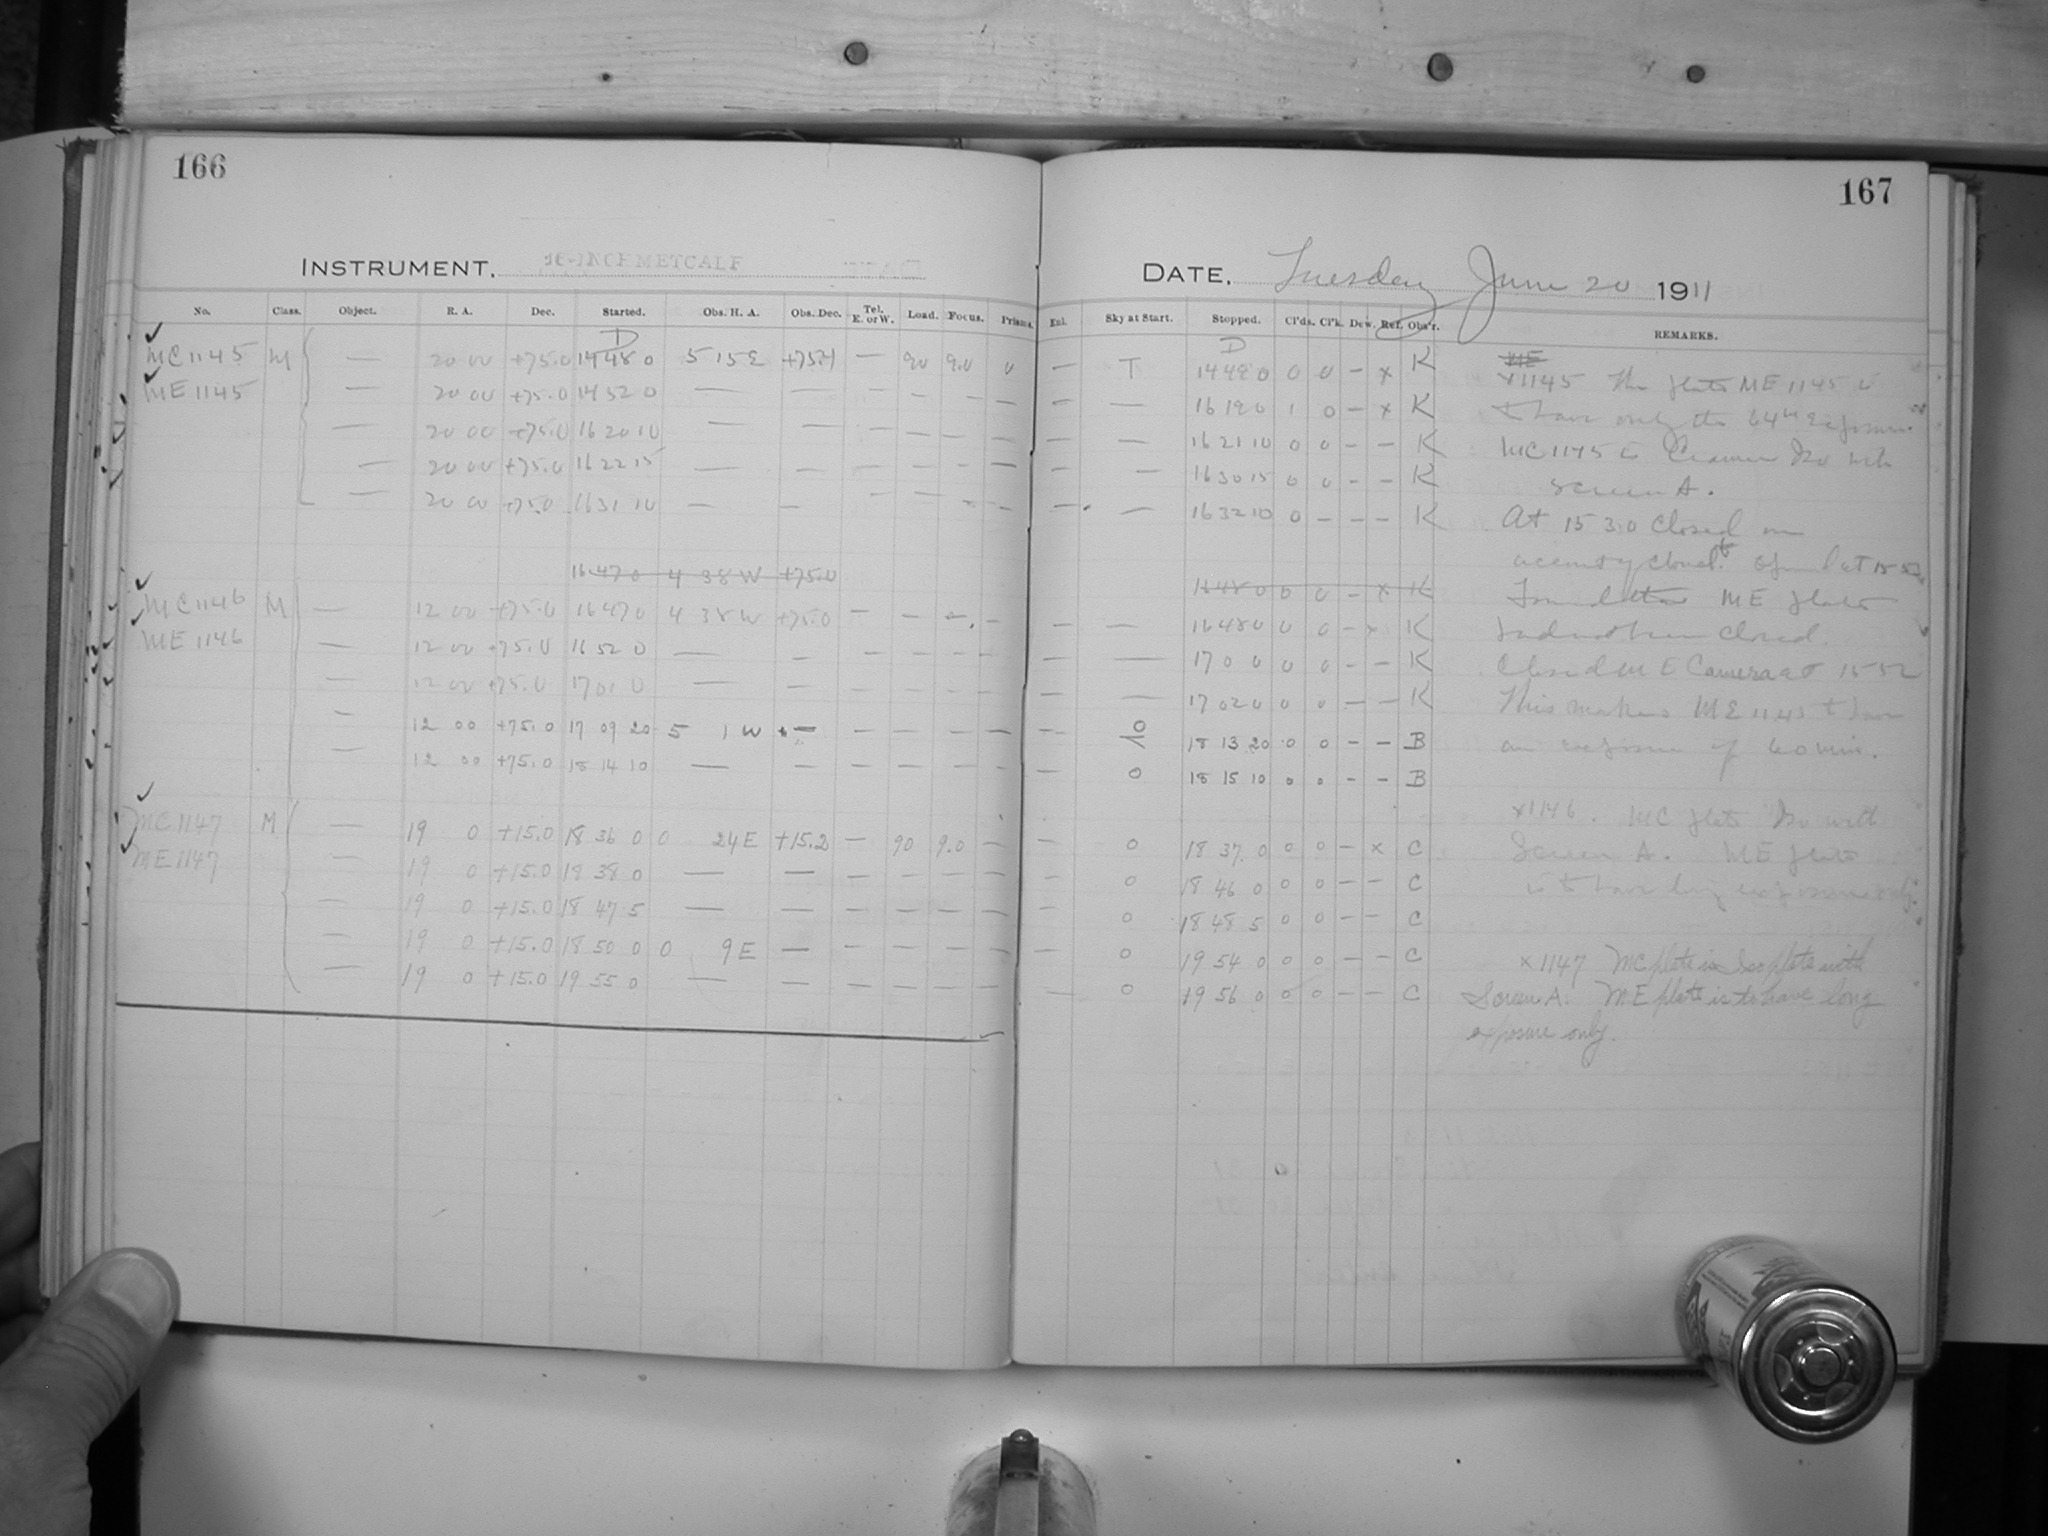 166
INSTRUMENT, 16-INCH METCALF
No. Class. Object. R. A. Dec. Started. Obs. H. A. Obs. Dec. Tel. E. or W. Load. Focus. Prisms.
D
MC 1145 M — 20 00 +75.0 14 48 0 5 15 E +75.1 — 90 9.0 0
ME 1145 — 20 00 +75.0 14 52 0 — — — — — —
— 20 00 +75.0 16 20 10 — — — — — —
— 20 00 +75.0 16 22 15 — — — — — —
— 20 00 +75.0 16 31 10 — — — — — —
16 47 0 4 38 W +75.0
MC 1146 M — 12 00 +75.0 16 47 0 4 38 W +75.0 — — — —
ME 1146 — 12 00 +75.0 16 52 0 — — — — — —
— 12 00 +75.0 17 01 0 — — — — — —
— 12 00 +75.0 17 09 20 5 1 W + — — — — —
— 12 00 +75.0 18 14 10 — — — — — —
MC 1147 M — 19 0 +15.0 18 36 0 0 24 E +15.2 — 90 9.0 —
ME 1147 — 19 0 +15.0 18 38 0 — — — — — —
— 19 0 +15.0 18 47 5 — — — — — —
— 19 0 +15.0 18 50 0 0 9 E — — — — —
— 19 0 +15.0 19 55 0 — — — — — —
167
DATE, Tuesday June 20 1911
Enl. Sky at Start. Stopped. Cl'ds. Cl'k. Dew. Ref. Obs'r. REMARKS.
D
— T 14 49 0 0 0 — x K ME
x1145 The plate ME 1145 is
— — 16 19 0 1 0 — x K to have only the 64m exposure.
— — 16 21 10 0 0 — — K MC 1145 is Cramer Iso with
— — 16 30 15 0 0 — — K Screen A.
— — 16 32 10 0 — — — K At 15 30 closed on
account of clouds. Opened at 15 53
16 48 0 0 0 — x K Found that ME plate
— — 16 48 0 0 0 — x K had not been closed.
— — 17 0 0 0 0 — — K Closed ME Camera at 15 52
— — 17 02 0 0 0 — — K This makes ME 1145 to have
— 10 18 13 20 0 0 — — B an exposure of 60 min.
— 0 18 15 10 0 0 — — B
x1146. MC plate Iso with
— 0 18 37 0 0 0 — x C Screen A. ME plate
— 0 18 46 0 0 0 — — C is to have long exposure only.
— 0 18 48 5 0 0 — — C
— 0 19 54 0 0 0 — — C x1147 MC plate is Iso plate with
— 0 19 56 0 0 0 — — C Screen A. ME plate is to have long
exposure only.